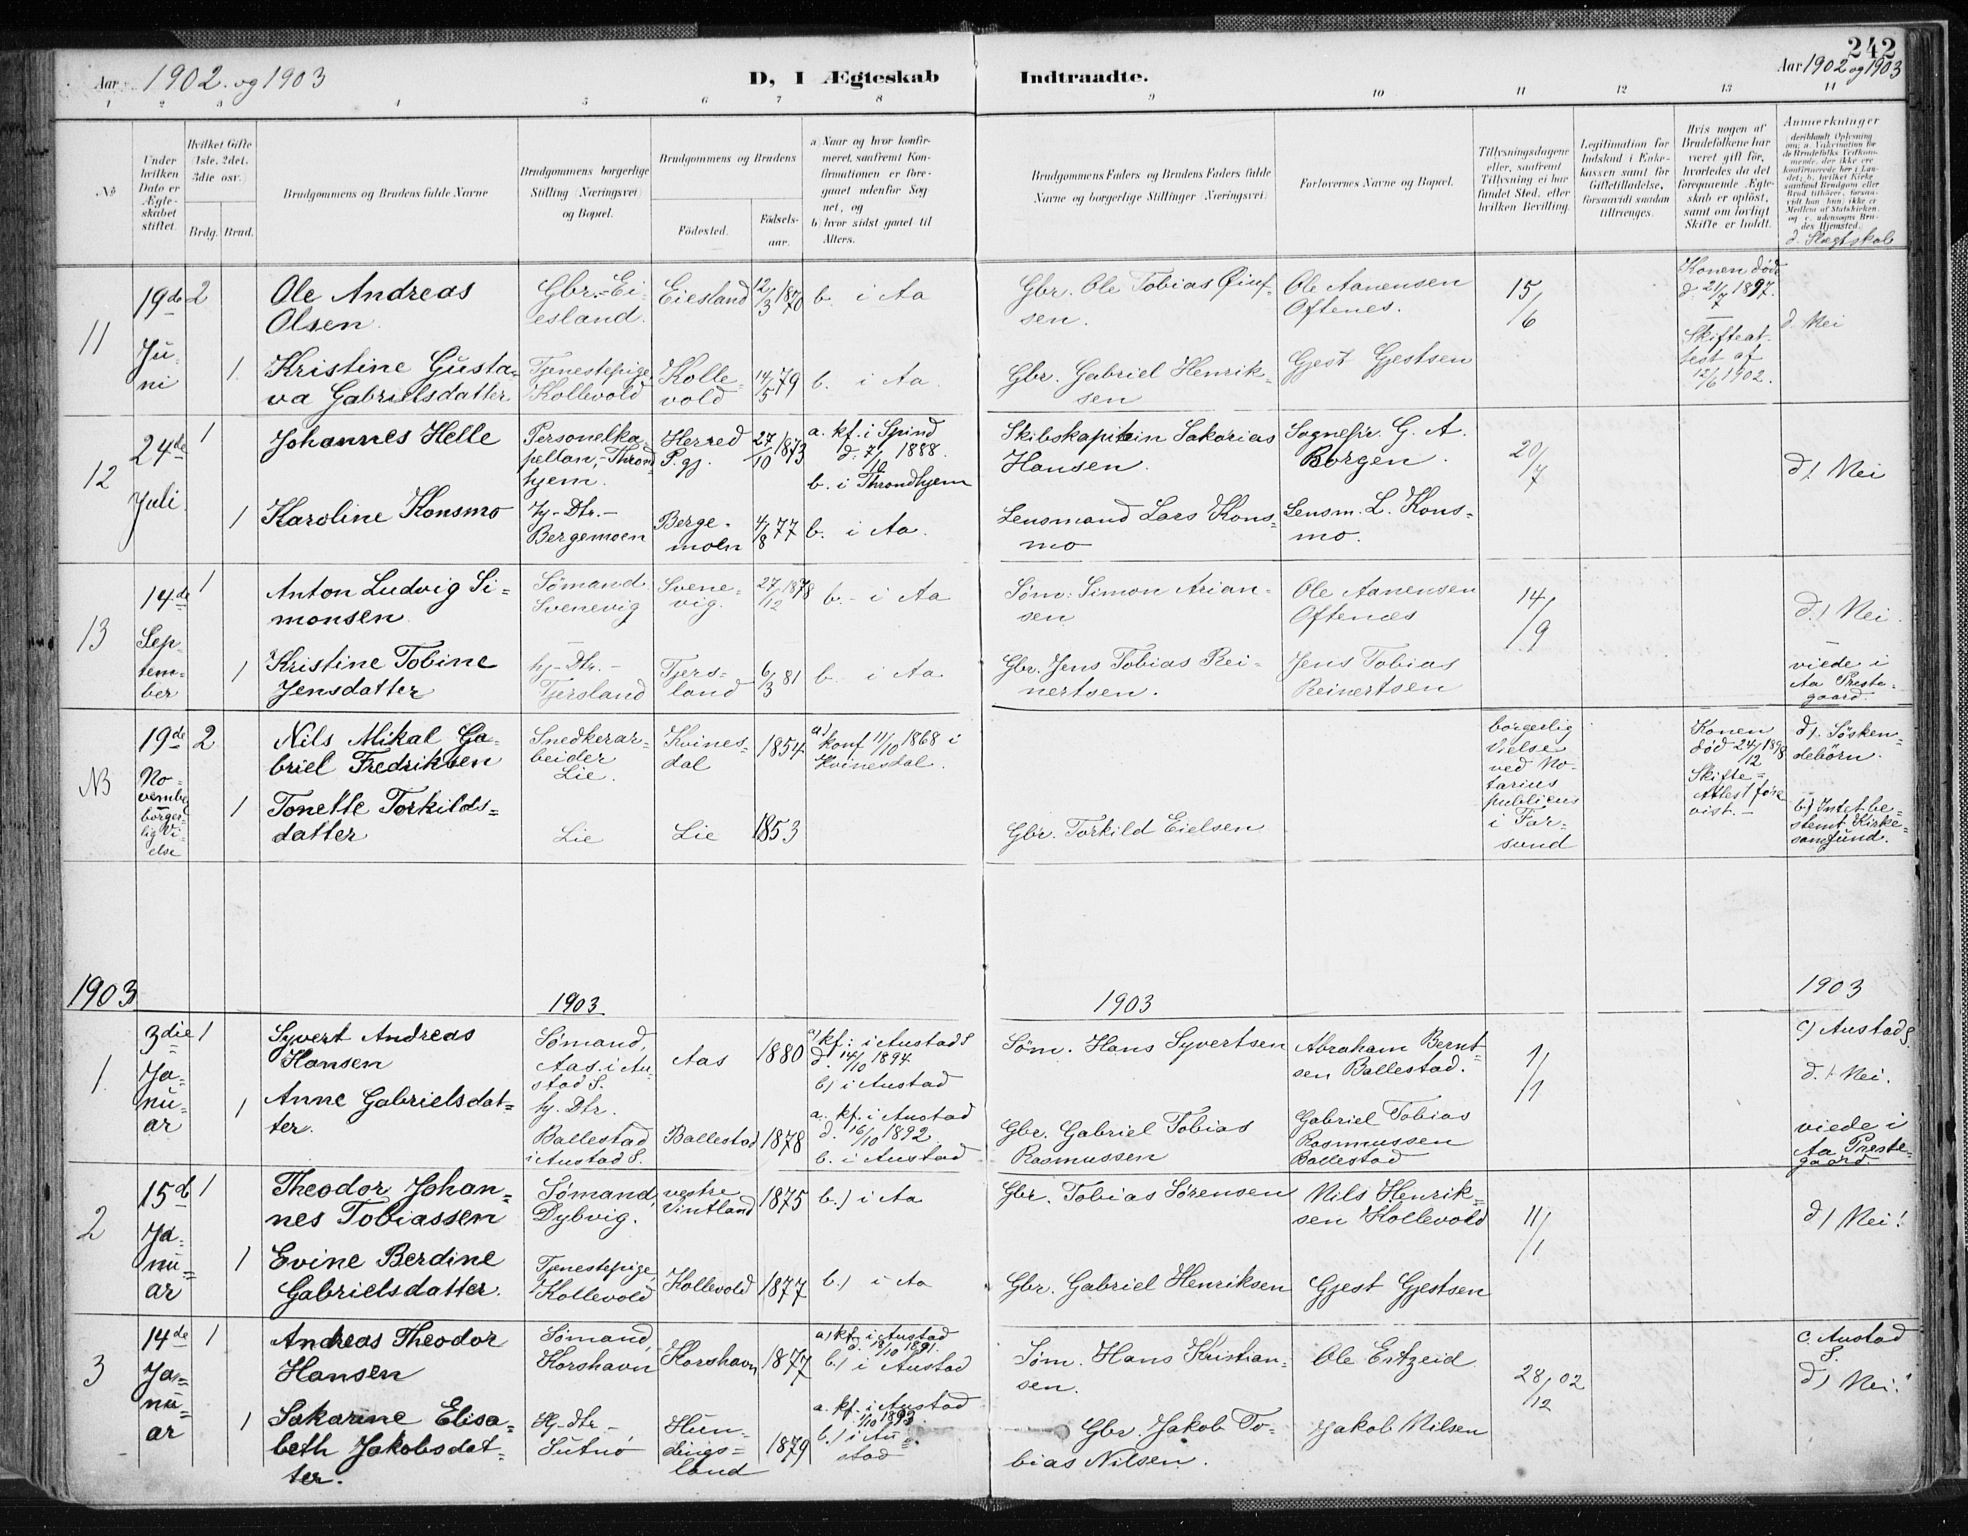 242
Aar 1902 og 1903
D, I Ægteskab Indtraadte.
Aar 1902 og 1903
1 2 3 4 5 6 7 8 9 10 11 12 13 14
No
Under hvilken Dato er Ægteskabet stiftet.
Hvilket Gifte (1ste, 2det, 3die osv.)
Brdg. Brud.
Brudgommens og Brudens fulde Navne
Brudgommens borgerlige Stilling (Næringsvei) og Bopæl.
Brudgommens og Brudens
Fødested.
Fødselsaar.
a) Naar og hvor konfirmeret, saafremt Konfirmationen er foregaaet udenfor Sognet, og
b) hvor sidst gaaet til Alters.
Brudgommens Faders og Brudens Faders fulde Navne og borgerlige Stillinger (Næringsvei)
Forlovernes Navne og Bopæl.
Tillysningsdagene eller, saafremt Tillysning ei har fundet Sted, efter hvilken Bevilling.
Legitimation for Indskud i Enkekassen samt for Giftetilladelse, forsaavidt saadan tiltrænges.
Hvis nogen af Brudefolkene har været gift før, hvorledes da det foregaaende Ægteskab er opløst, samt om lovligt Skifte er holdt.
Anmerkninger
d. Slægtskab
11
19de Juni
2
Ole Andreas
Olsen
Gbr. - Eiesland.
Eiesland
12/3 1870
b. i Aa
Gbr. Ole Tobias
sen.
Ole Aanensen
Oftenes.
15/6
Konen døde
d. 21/7 1897.
Skifteattest af
12/6 1902.
d. Nei
1
Kristine Gustava Gabrielsdatter
Tjenestepige,
Kollevold
Kollevold
14/5 79
b. i Aa.
Gbr. Gabriel Henriksen
Gjest Gjestsen
12
24de Juli
1
Johannes Helle
Personelkapellan, - Throndhjem.
Herred
P.gj.
27/10 1873
a. kf. i Spind
d. 7/10 1888.
b. i Throndhjem
Skibskaptein Sakarias
Hansen.
Sognepr. G. A.
Borgen.
20/7
d). Nei
1
Karoline Konsmo
Hj-Dtr. -
Bergemoen
Bergemoen
4/8 77
b. i Aa.
Lensmand Lars Konsmo
Lensm. L. Konsmo.
13
14de September
1
Anton Ludvig Simonsen
Sømand
Svenevig
Svenevig.
27/12 1878
b. - i Aa
Søm. Simon Ariansen
Ole Aanensen
Oftenæs
14/9
d.) Nei.
viede i
Aa Prestegaard.
1
Kristine Tobine
Jensdatter
hj-Dtr. -
Tjersland
Tjersland
6/3 81
b. i Aa
Gbr. Jens Tobias Reinertsen.
Jens Tobias
Reinertsen
NB
19de November borgerlig Vielse
2
Nils Mikal Gabriel Fredriksen
Snedkerarbeider
Lie.
Kvinesdal
1854
a) konf 11/10 1868 i
Kvinesdal.
børgerlig
Vielse
ved Notarius
publicus
i Farsund
Konen
død 24/12 1898
Skifteattest forevist. -
d). Søskendebørn.
b) Intet bestemt Kirkesamfund.
1
Tonette Torkildsdatter
Lie
Lie
1853
Gbr. Torkild Eielsen
1903 1903 1903 1903
1.
3die Januar
1
Syvert Andreas
Hansen
Sømand,
Aas. i Austad S.
Aas
1880
a) kf: i Austad S
d. 14/10 1894.
b) i Austad
Søm. Hans Syvertsen
Abraham Berntsen Ballestad.
1/1
c) Austad S.
d. ) Nei.
viede i
Aa Prestegaard.
1
Anne Gabrielsdatter.
hj. Dtr.
Ballestad
i Austad S.
Ballestad
1878
a. kf. i Austad
d. 16/10 1892.
b. i Austad
Gbr. Gabriel Tobias
Rasmussen
Gabriel Tobias
Rasmussen
Ballestad
2
15d Januar
1
Theodor Johannes Tobiassen
Sømand,
Dybvig.
vestre
Vintland
1875
b.) i Aa
Gbr. Tobias Sørensen
Nils Henriksen Kollevold
11/1
d) Nei!
1
Evine Berdine
Gabrielsdatter.
Tjenestepige,
Kollevold
Kollevold
1877
b.) i Aa
Gbr. Gabriel Henriksen
Gjest Gjestsen
3
14de Januar
1
Andreas Theodor
Hansen
Sømand,
Korshavn
Korshavn
1877
a) kf. i Austad
d. 18/10 1891.
b.) i Austad
Søm. Hans Kristiansen.
Ole Eitzeid
28/12 02
c. Austad
S.
d) Nei!
1
Sakarine Elisabeth Jakobsdatter.
Hj-dtr -
Sutnø
Hundingsland
1879
a. kf. i Austad
1/10 1893.
b.) i Austad
Gbr. Jakob Tobias Nilsen.
Jakob Nilsen